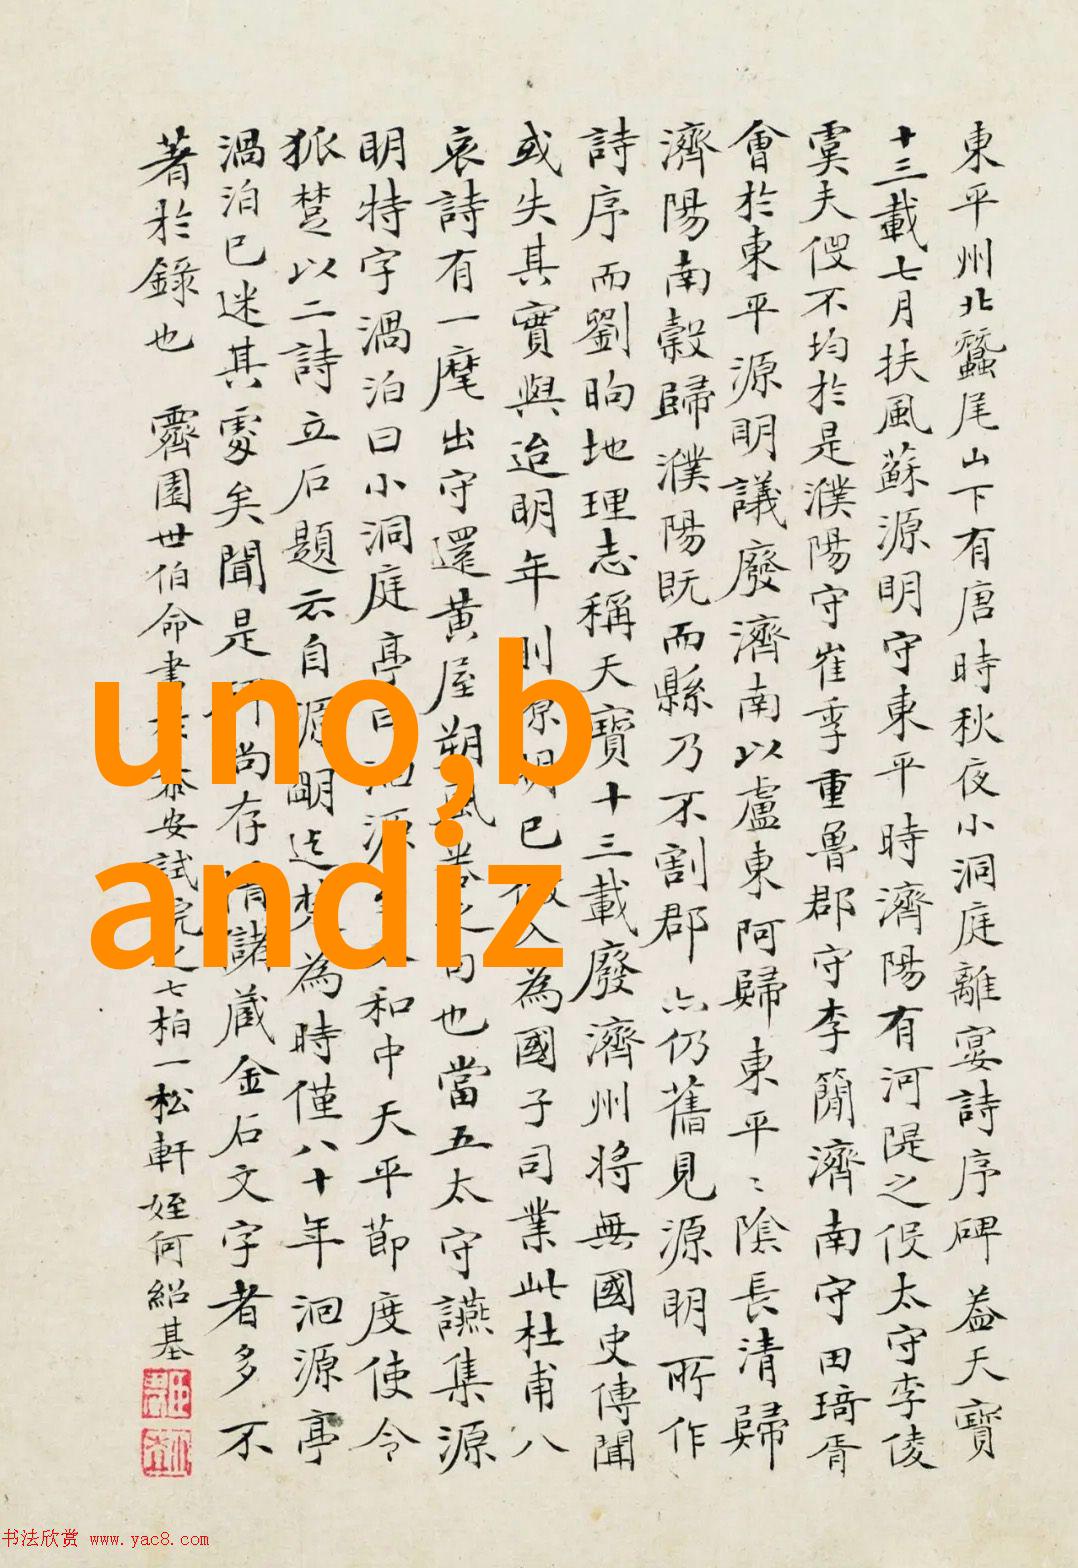 東平州北蠶尾山下有唐時秋夜小洞庭離宴詩序碑葢天寶
十三載七月扶風蘇源明守東平時濟陽有河隄之役太守李倰
虞夫伇不均於是濮陽守崔季重魯郡守李簡濟南守田琦胥
會於東平源明議廢濟南以盧東阿歸東平〻陰長清歸
濟陽南糓歸濮陽既而縣乃不割郡亦仍舊見源明所作
詩序而劉昫地理志稱天寶十三載廢濟州將無國史傳聞
或失其實與迨明年則源明已入為國子司業此杜甫八
哀詩有一麾出守還黃屋朔風卷之句也當五太守讌集源
明特字渦泊曰小洞庭亭曰洄源和中天平節度使令
狐楚以二詩立石題云自源明迄為時僅八十年洄源亭
渦泊已迷其處矣聞是尚存諸藏金石文字者多不
著於錄也 霽園世伯命書泰安試院之七柏一松軒姪何紹基
uno,b
andiz
书法欣赏 www.yac8.com